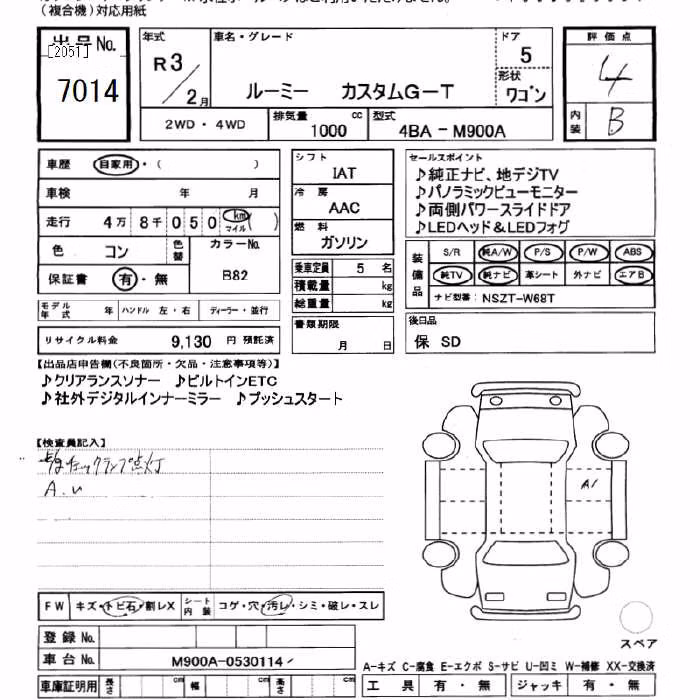 (複合機)対応用紙
出品No.
[2051]
7014
年式
R3/2月
車名・グレード
ルーミー カスタムG-T
ドア
5
形状
ワゴン
評価点
4
内装
B
2WD・4WD
排気量
1000 cc
型式
4BA-M900A
車歴 自家用・( )
車検 年 月
走行 4万8千050 km マイル ( )
色 コン
色替
カラーNo.
B82
保証書 有・無
モデル年式 年 ハンドル 左・右 ディーラー・並行
リサイクル料金 9,130 円 預託済
シフト
IAT
冷房
AAC
燃料
ガソリン
乗車定員 5 名
積載量 kg
総重量 kg
書類期限
月 日
セールスポイント
♪純正ナビ、地デジTV
♪パノラミックビューモニター
♪両側パワースライドドア
♪LEDヘッド&LEDフォグ
装備品
S/R 純A/W P/S P/W ABS
純TV 純ナビ 革シート 外ナビ エアB
ナビ型番: NSZT-W68T
後日品
保 SD
【出品店申告欄(不良箇所・欠品・注意事項等)】
♪クリアランスソナー ♪ビルトインETC
♪社外デジタルインナーミラー ♪プッシュスタート
【検査員記入】
チェックランプ点灯
A.U
A1
FW キズ・トビ石・割レX
シート内装 コゲ・穴・汚レ・シミ・破レ・スレ
登録No.
車台No. M900A-0530114
車庫証明用 長さ cm 幅 cm 高さ cm
スペア
A-キズ C-腐食 E-エクボ S-サビ U-凹ミ W-補修 XX-交換済
工具 有・無 ジャッキ 有・無